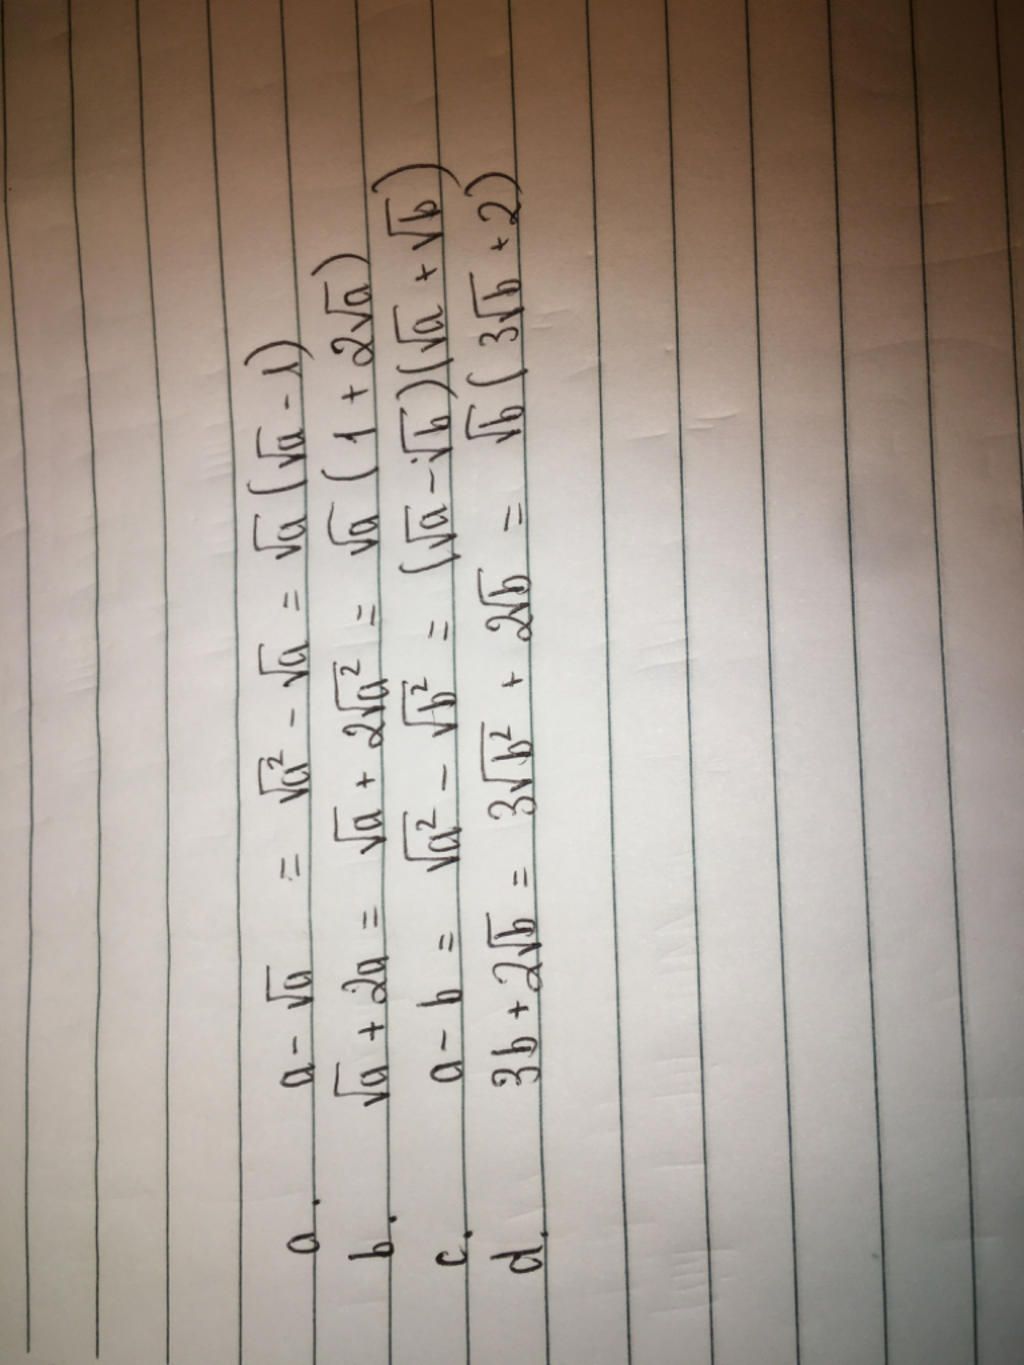 a. a - √a = √a² - √a = √a (√a - 1)
b. √a + 2a = √a + 2√a² = √a (1 + 2√a)
c. a - b = √a² - √b² = (√a - √b)(√a + √b)
d. 3b + 2√b = 3√b² + 2√b = √b (3√b + 2)